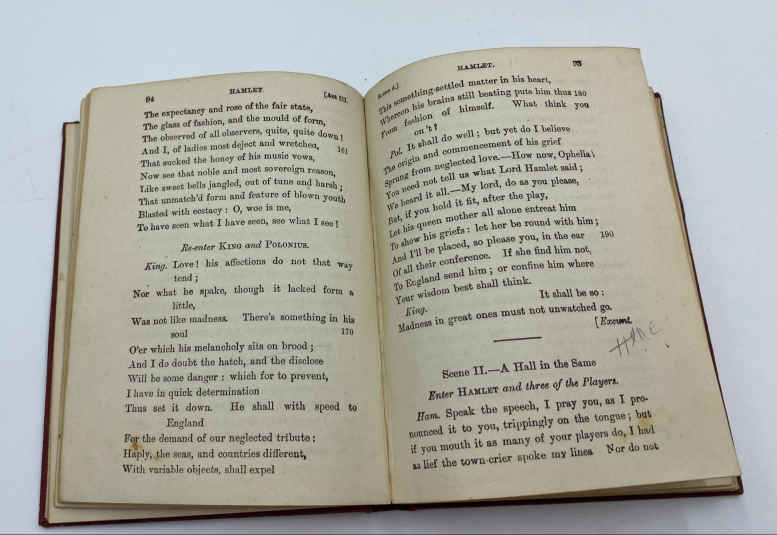 94
HAMLET
[Act III.
The expectancy and rose of the fair state,
The glass of fashion, and the mould of form,
The observed of all observers, quite, quite down!
And I, of ladies most deject and wretched, 161
That sucked the honey of his music vows,
Now see that noble and most sovereign reason,
Like sweet bells jangled, out of tune and harsh;
That unmatch'd form and feature of blown youth
Blasted with ecstacy: O, woe is me,
To have seen what I have seen, see what I see!
Re-enter KING and POLONIUS.
King. Love! his affections do not that way
tend;
Nor what he spake, though it lacked form a
little,
Was not like madness. There's something in his
soul 170
O'er which his melancholy sits on brood;
And I do doubt the hatch, and the disclose
Will be some danger: which for to prevent,
I have in quick determination
Thus set it down. He shall with speed to
England
For the demand of our neglected tribute:
Haply, the seas, and countries different,
With variable objects, shall expel
HAMLET.
95
This something-settled matter in his heart,
Whereon his brains still beating puts him thus 180
From fashion of himself. What think you
on't?
Pol. It shall do well; but yet do I believe
The origin and commencement of his grief
Sprung from neglected love.—How now, Ophelia!
You need not tell us what Lord Hamlet said;
We heard it all.—My lord, do as you please,
But, if you hold it fit, after the play,
Let his queen mother all alone entreat him
To show his griefs: let her be round with him;
And I'll be placed, so please you, in the ear 190
Of all their conference. If she find him not,
To England send him; or confine him where
Your wisdom best shall think.
King. It shall be so:
Madness in great ones must not unwatched go.
[Exeunt.
Scene II.—A Hall in the Same
Enter HAMLET and three of the Players.
Ham. Speak the speech, I pray you, as I pro-
nounced it to you, trippingly on the tongue; but
if you mouth it as many of your players do, I had
as lief the town-crier spoke my lines Nor do not